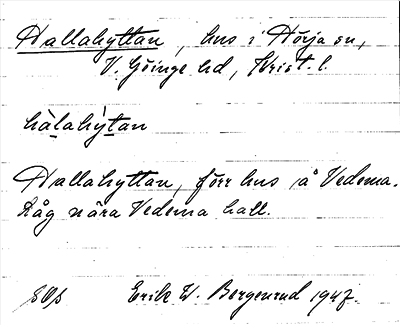 Hallahyttan, hus i Hörja sn,
V. Göinge hd, Krist. l.
hàlahýtan
Hallahyttan, förr hus å Vedema.
Låg nära Vedema hall.
Erik W. Bergenrud 1947.